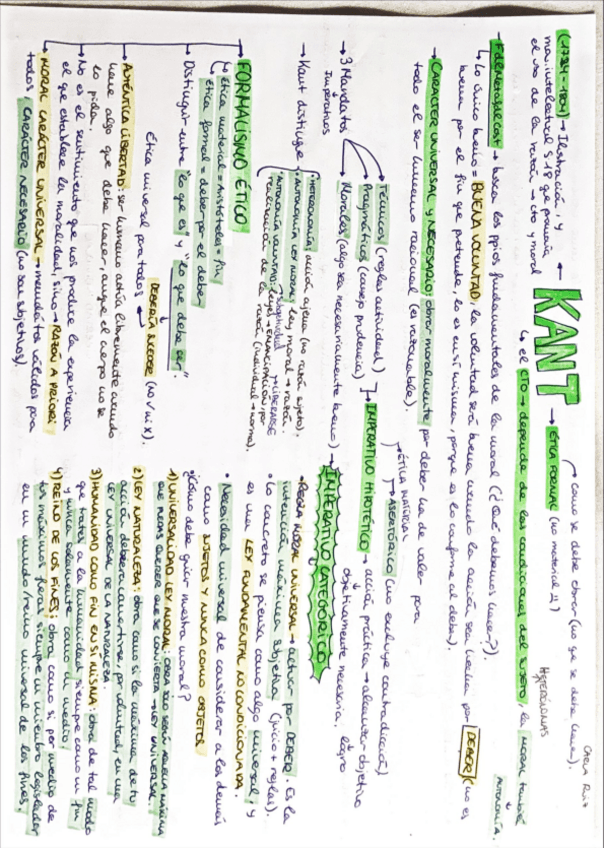 Carla Ruiz
KANT
(1724 - 1804) → Ilustración, y
mov. intelectual S.18 que promovía
el uso de la razón → cto y moral
→ ÉTICA FORMAL (no material !!)
→ como se debe obrar (no qué se debe hacer).
HETERÓNOMAS
→ el CTO → depende de las condiciones del sujeto, la moral también
↓
AUTONOMÍA.
• Fdr Metaf Cost → busca los ppios fundamentales de la moral (¿Qué debemos hacer?).
→ Lo único bueno = BUENA VOLUNTAD: la voluntad será buena cuando la acción sea hecha por DEBER (no es
buena por el fin que pretende, lo es en sí misma, porque es lo conforme al deber).
→ CARÁCTER UNIVERSAL y NECESARIO: obrar moralmente por deber ha de valer para
todo el ser humano racional (es razonable).
→ 3 Mandatos
↓
Imperativos
Técnicos (reglas actividad)
Pragmáticos (consejo prudencia)
Morales (algo sea necesariamente bueno) → IMPERATIVO CATEGÓRICO
IMPERATIVO HIPOTÉTICO → acción práctica → alcanzar objetivo
→ ÉTICA MATERIAL
→ ASERTÓRICO (no excluye contradicción)
objetivamente necesaria, logro
→ Kant distingue
• HETERONOMÍA: acción ajena (no razón sujeto).
• AUTONOMÍA LEY MORAL: ley moral → razón.
• AUTONOMÍA VOLUNTAD: leyes → EMANCIPACIÓN, por
→ LIBERARSE
realización de la razón (individual → norma).
FORMALISMO ÉTICO
→ Ética material = Aristóteles = fin
→ Ética formal = deber por el deber
→ Distinguir entre "lo que es" y "lo que debe ser".
↓
DEBERÍA SUCEDER (no v ni x).
Ética universal para todos
→ AUTÉNTICA LIBERTAD: ser humano actúa libremente cuando
hace algo que debe hacer, aunque el cuerpo no se
lo pida.
→ No es el sentimiento que nos produce la experiencia
el que establece la moralidad, sino → RAZÓN A PRIORI
→ MORAL CARÁCTER UNIVERSAL → mandatos válidos para
todos CARÁCTER NECESARIO (no son subjetivos).
• REGLA MORAL UNIVERSAL → actuar por DEBER. Es la
intención máxima subjetiva (juicio + reglas).
• Lo concreto se piensa como algo universal, y
es una LEY FUNDAMENTAL NO CONDICIONADA.
• Necesidad universal de considerar a los demás
como SUJETOS Y NUNCA COMO OBJETOS
¿Cómo debe guiar nuestra moral?
1) UNIVERSALIDAD LEY MORAL: OBRA SOLO SEGÚN AQUELLA MÁXIMA
QUE PUEDAS QUERER QUE SE CONVIERTA → LEY UNIVERSAL.
2) LEY NATURALEZA: obra como si la máxima de tu
acción debiera convertirse, por voluntad, en una
LEY UNIVERSAL DE LA NATURALEZA.
3) HUMANIDAD COMO FIN EN SÍ MISMA: obra de tal modo
que trates a la humanidad, siempre como un fin
y nunca solamente como un medio.
4) REINO DE LOS FINES: obra como si por medio de
tus máximas fueras siempre un miembro legislador
en un mundo/reino universal de los fines.